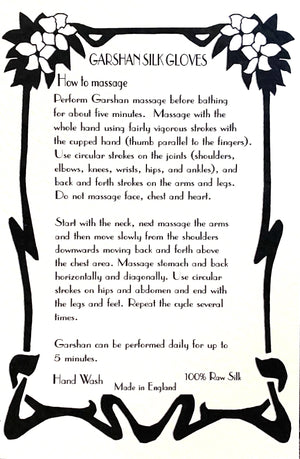 GARSHAN SILK GLOVES
How to massage
Perform Garshan massage before bathing
for about five minutes. Massage with the
whole hand using fairly vigorous strokes with
the cupped hand (thumb parallel to the fingers).
Use circular strokes on the joints (shoulders,
elbows, knees, wrists, hips, and ankles), and
back and forth strokes on the arms and legs.
Do not massage face, chest and heart.
Start with the neck, next massage the arms
and then move slowly from the shoulders
downwards moving back and forth above
the chest area. Massage stomach and back
horizontally and diagonally. Use circular
strokes on hips and abdomen and end with
the legs and feet. Repeat the cycle several
times.
Garshan can be performed daily for up to
5 minutes.
Hand Wash 100% Raw Silk
Made in England